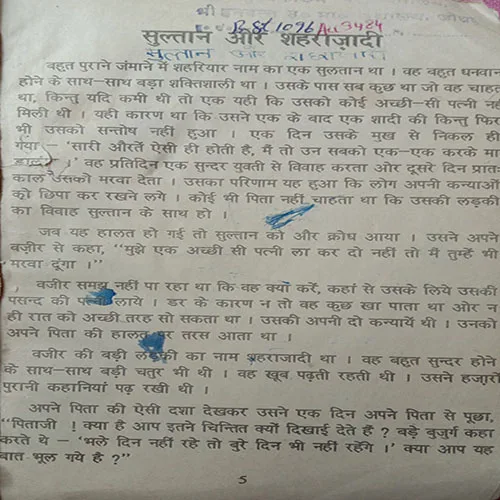 Acc 3484
सुल्तान और शहरीज़ादी
सुलतान और
बहुत पुराने जंमाने में शहरियार नाम का एक सुलतान था । वह बहुत धनवान
होने के साथ-साथ बड़ा शक्तिशाली था । उसके पास सब कुछ था जो वह चाहत
था, किन्तु यदि कमी थी तो एक यही कि उसको कोई अच्छी-सी पत्नी न
मिली थी । यही कारण था कि उसने एक के बाद एक शादी की किन्तु फिर
भी उसको सन्तोष नहीं हुआ । एक दिन उसके मुख से निकल ही
गया – 'सारी औरतें ऐसी ही होती है, मैं तो उन सबको एक-एक करके मा
।' वह प्रतिदिन एक सुन्दर युवती से विवाह करता और दूसरे दिन प्रातः
काल उसको मरवा देता । उसका परिणाम यह हुआ कि लोग अपनी कन्याओं
को छिपा कर रखने लगे । कोई भी पिता नहीं चाहता था कि उसकी लड़की
का विवाह सुल्तान के साथ हो ।
जब यह हालत हो गई तो सुल्तान को और क्रोध आया । उसने अपने
बज़ीर से कहा, “मुझे एक अच्छी सी पत्नी ला कर दो नहीं तो मैं तुम्हें भी
मरवा दूंगा ।”
वजीर समझ नहीं पा रहा था कि वह क्या करें, कहां से उसके लिये उसकी
पसन्द की पत्नी लाये । डर के कारण न तो वह कुछ खा पाता था ओर न
ही रात को अच्छी तरह सो सकता था । उसकी अपनी दो कन्यायें थी । उनको
अपने पिता की हालत पर तरस आता था ।
वजीर की बड़ी लड़की का नाम शहराजादी था । वह बहुत सुन्दर होने
के साथ-साथ बड़ी चतुर भी थी । वह खूब पढ़ती रहती थी । उसने हजारों
पुरानी कहानियां पढ़ रखी थी ।
अपने पिता की ऐसी दशा देखकर उसने एक दिन अपने पिता से पूछा,
“पिताजी ! क्या है आप इतने चिन्तित क्यों दिखाई देते हैं ? बड़े बुजुर्ग कहा
करते थे – 'भले दिन नहीं रहे तो बुरे दिन भी नहीं रहेंगे ।' क्या आप यह
बात भूल गये है ?”
5